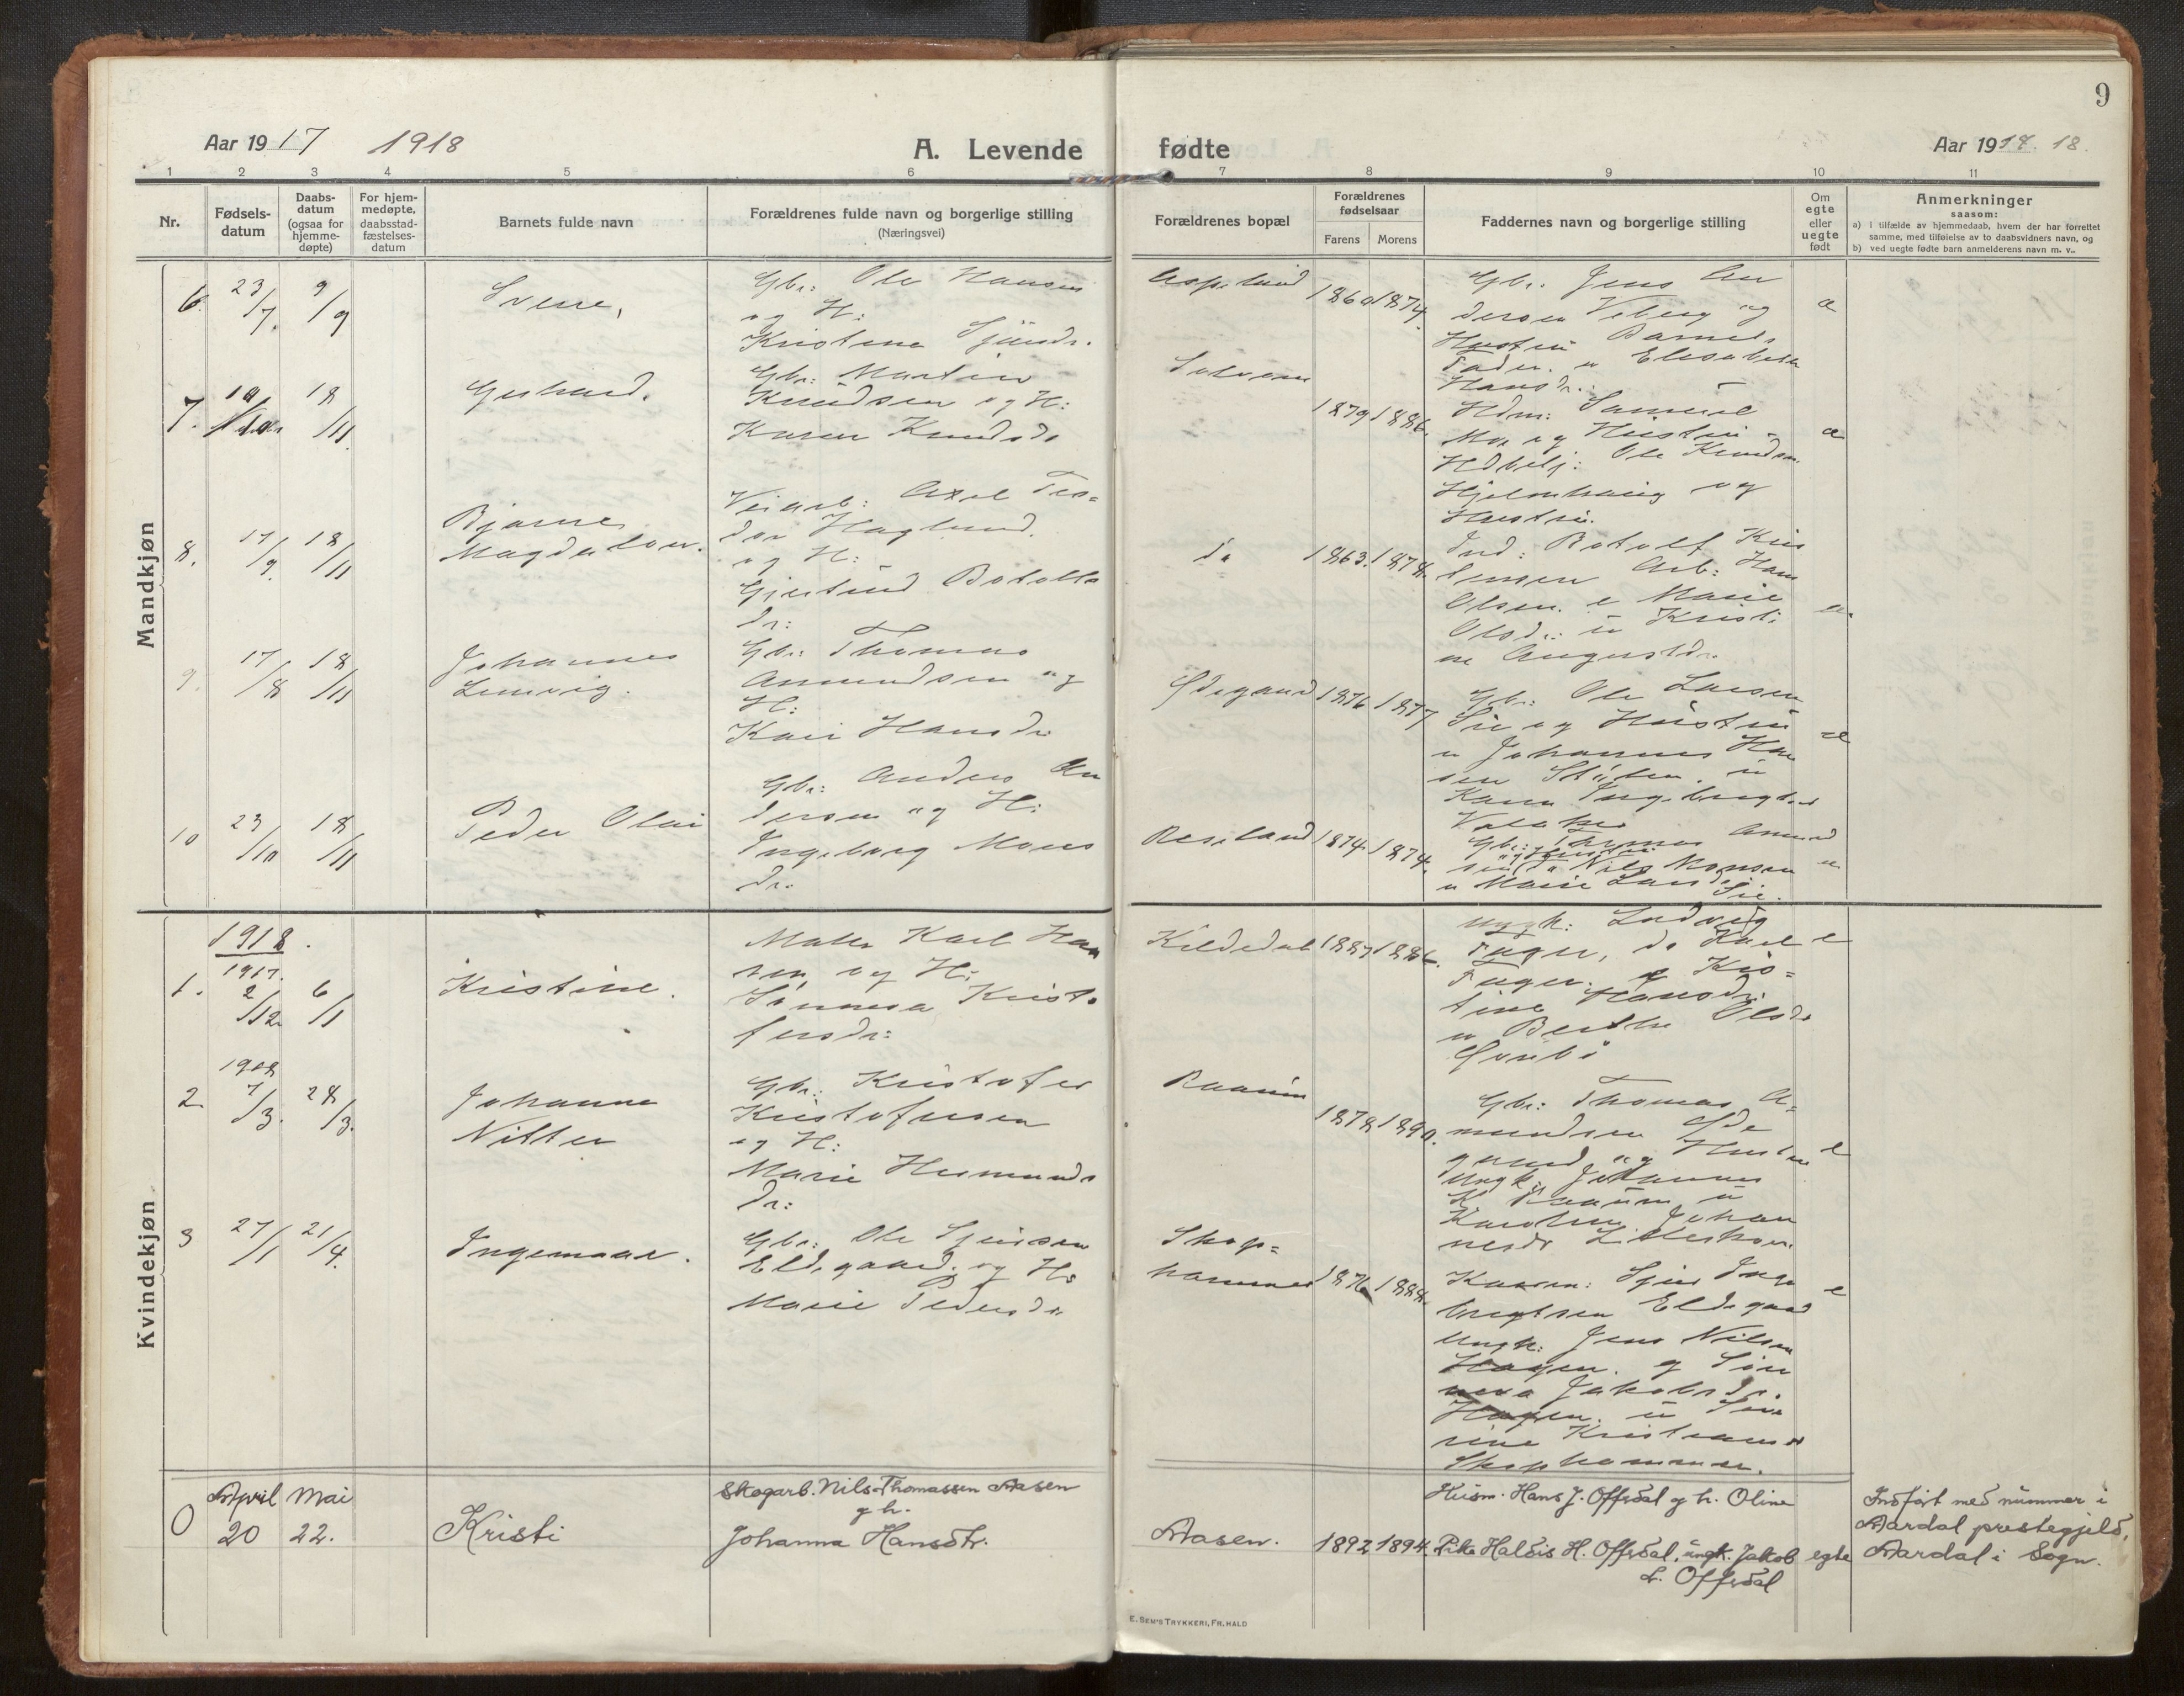 9
Aar 1917 1918
A. Levende fødte
Aar 1917. 18.
1 2 3 4 5 6 7 8 9 10 11
Nr.
Fødsels-
datum
Daabs-
datum
(ogsaa for
hjemme-
døpte)
For hjem-
medøpte,
daabsstad-
fæstelses-
datum
Barnets fulde navn
Forældrenes fulde navn og borgerlige stilling
(Næringsvei)
Forældrenes bopæl
Forældrenes
fødselsaar
Farens Morens
Faddernes navn og borgerlige stilling
Om
egte
eller
uegte
født
Anmerkninger
saasom:
a) i tilfælde av hjemmedaab, hvem der har forrettet
samme, med tilføielse av to daabsvidners navn, og
b) ved uegte fødte barn anmelderens navn m. v..
Mandkjøn
6. 23/7. 9/9 Sverre,
Gbr: Ole Hansen
og H:
Kristine
1860 1874.
Gbr. Jens An
dersen Viberg og
Hustru Barnets
Fader. u Elisabeth
Hansdr.:
7. 18/11 Gerhard.
Gbr: Martin
Knudsen og H:
Karen Knudsdr
1879 1886.
Hdm: Samuel
Moe og Hustru
Ole Knudsen
og
Hustru.
8. 17/9. 18/11 Bjarne
Veiarb: Axel Teo=
dor Haglund.
og H:
Gjertrud Botolfs
dr:
do 1863. 1878.
Ind: Botolf Kris
tensen Arb: Hans
Olsen. e Marie
Olsd.: u Kristi
ne Augustdr.
9. 17/8 18/11 Johannes
Lunvig.
Gbr: Thomas
Amundsen og
H:
Kari Hansdr
Ødegaard 1876 1877
Gbr: Ole Larsen
Sie og Hustru
u Johannes Han
sen
10 23/10 18/11 Peder Olai
Gbr: Anders An
dersen og H:
Ingeborg Mons
dr.
Reseland 1874 1874.
Gbr: Tomas Amund
sen og Hustru
do Nils Monsen
u Marie Larsdr
Sie.
Kvindekjøn
1918.
1917.
1. 2/12 6/1 Kristine.
Karl Han
sen, og H:
Sønneva Kristo
fersdr:
Kildedal 1887 1886. e
ungk: Ludvig
Fuger, do Karl
Fuger. g Kris=
tine Hansdr.
u Berthe Olsdr
1908
2. 7/3. 28/3. Johanne
Nitter
Gbr: Kristofer
Kristofersen
og H:
Marie Hermunds
dr:
Raaum
1878 1890. e
Gbr: Thomas A=
mundsen Øde
gaard og Hustru
Ungk: Johannes
K Raaum u
Karoline Johan
nesdr
3 27/1 21/4. Ingemaar.
Gbr: Ole Sjursen
Eldegaard. og H:
Marie Pedersdr
Skap=
hammer 1876 1888. e
Kaarm: Sjur Inge
brigtsen Eldegaard
Ungk: Jens Nilsen
Hagen. g Søn
neva Jakobsdr.
Hagen. u Seve
rine Kristiansdr
Skaphammer.
0 April Mai
20 22. Kristi
Skogarb. Nils Thomassen Aasen
g h.
Johanna Hansdtr.
Aasen. 1892 1894.
Husm. Hans J. Offerdal g h. Oline
Pike Haldis H. Offerdal, ungk. Jakob
L. Offerdal
egte
Indført med nummer i
Aardal prestegjeld,
Aardal i Sogn.
E. SEM'S TRYKKERI, FR.HALD